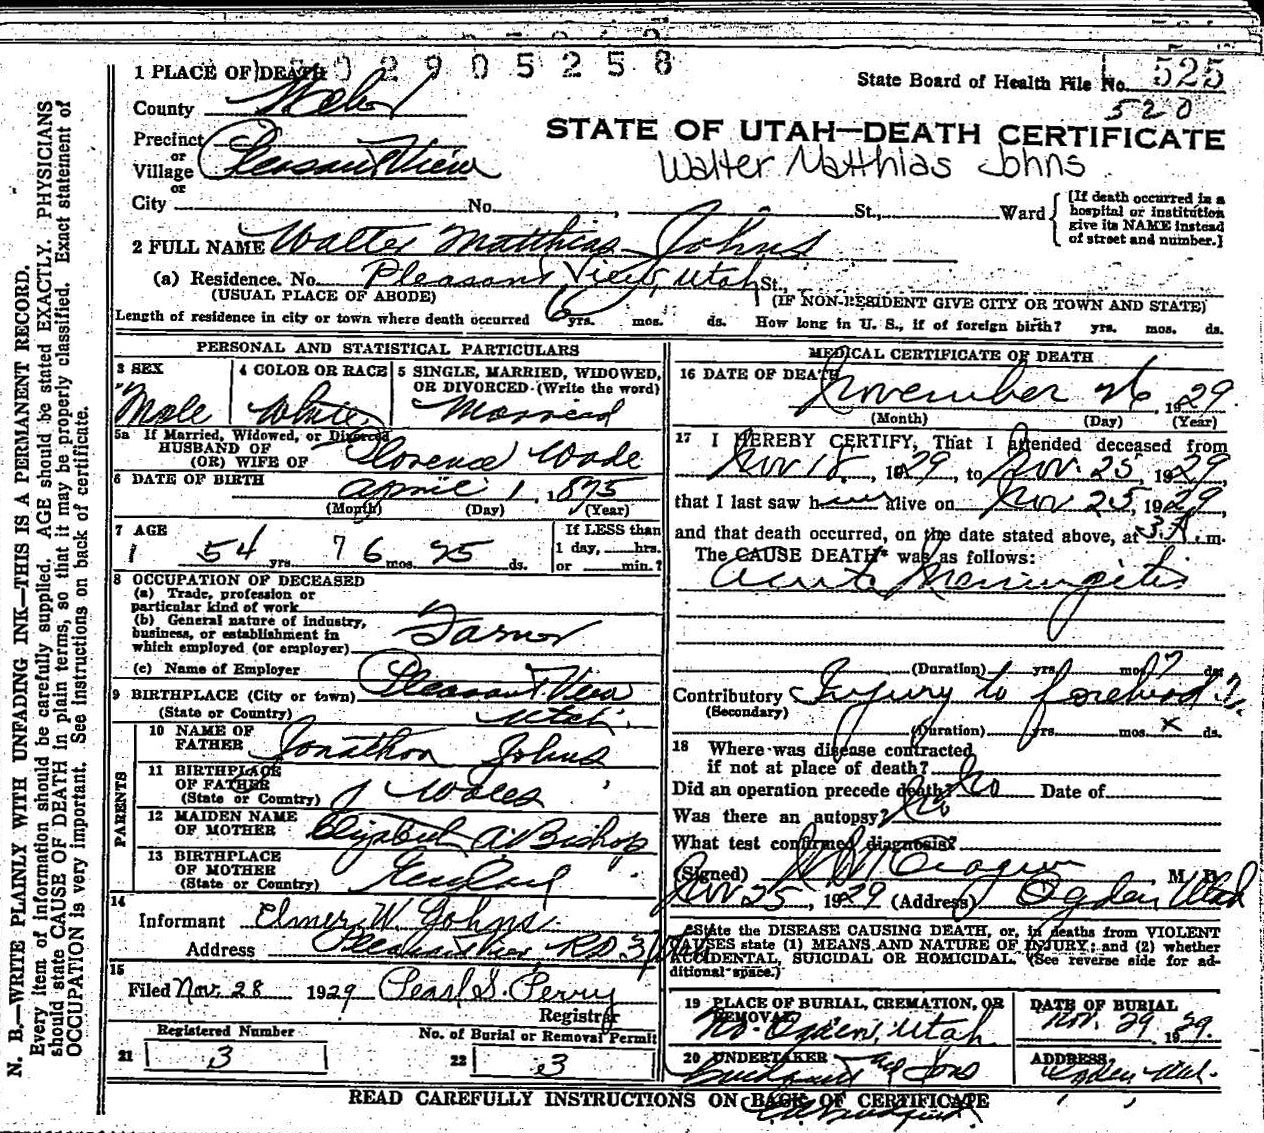 1 PLACE OF DEATH 0 2 9 0 5 2 5 8
State Board of Health File No. 525
520
County Weber
STATE OF UTAH—DEATH CERTIFICATE
Walter Matthias Johns
Precinct
or
Village Pleasant View
or
City No. , St., Ward
[If death occurred in a
hospital or institution
give its NAME instead
of street and number.]
2 FULL NAME Walter Matthias Johns
(a) Residence. No. Pleasant View, Utah St.,
(USUAL PLACE OF ABODE) (IF NON-RESIDENT GIVE CITY OR TOWN AND STATE)
Length of residence in city or town where death occurred 6 yrs. mos. ds. How long in U. S., if of foreign birth? yrs. mos. ds.
PERSONAL AND STATISTICAL PARTICULARS
3 SEX
Male
4 COLOR OR RACE
White
5 SINGLE, MARRIED, WIDOWED,
OR DIVORCED (Write the word)
Married
5a If Married, Widowed, or Divorced
HUSBAND OF
(OR) WIFE OF Florence Wade
6 DATE OF BIRTH April 1, 1875
(Month) (Day) (Year)
7 AGE
54 yrs. 7 6 mos. 25 ds.
If LESS than
1 day, hrs.
or min.?
8 OCCUPATION OF DECEASED
(a) Trade, profession or
particular kind of work
(b) General nature of industry,
business, or establishment in
which employed (or employer) Farmer
(c) Name of Employer
9 BIRTHPLACE (City or town) Pleasant View
(State or Country) Utah.
PARENTS
10 NAME OF
FATHER Jonathon Johns
11 BIRTHPLACE
OF FATHER
(State or Country) Wales
12 MAIDEN NAME
OF MOTHER Elizabeth A. Bishop
13 BIRTHPLACE
OF MOTHER
(State or Country) England
14
Informant Elmer W. Johns
Address Pleasant View, R.D. 3
15
Filed Nov. 28 1929 Pearl S. Perry
Registrar
Registered Number
21 3
No. of Burial or Removal Permit
22 3
MEDICAL CERTIFICATE OF DEATH
16 DATE OF DEATH November 26, 1929.
(Month) (Day) (Year)
17 I HEREBY CERTIFY, That I attended deceased from
Nov 18, 1929, to Nov. 25, 1929,
that I last saw him alive on Nov 25, 1929,
and that death occurred, on the date stated above, at 3 A. m.
The CAUSE DEATH* was as follows:
Acute Meningitis
(Duration) yrs. mos. 7 ds.
Contributory Injury to forehead
(Secondary)
(Duration) yrs. mos. x ds.
18 Where was disease contracted
if not at place of death?
Did an operation precede death? No Date of
Was there an autopsy? No
What test confirmed diagnosis?
(Signed) M. D.
Nov 25, 1929 (Address) Ogden Utah
*State the DISEASE CAUSING DEATH, or, in deaths from VIOLENT
CAUSES state (1) MEANS AND NATURE OF INJURY; and (2) whether
ACCIDENTAL, SUICIDAL OR HOMICIDAL. (See reverse side for ad-
ditional space.)
19 PLACE OF BURIAL, CREMATION, OR
REMOVAL
No. Ogden, Utah
DATE OF BURIAL
Nov. 29, 1929.
20 UNDERTAKER
and Sons
ADDRESS
Ogden Utah.
READ CAREFULLY INSTRUCTIONS ON BACK OF CERTIFICATE
N. B.—WRITE PLAINLY WITH UNFADING INK—THIS IS A PERMANENT RECORD.
Every item of information should be carefully supplied. AGE should be stated EXACTLY. PHYSICIANS
should state CAUSE OF DEATH in plain terms, so that it may be properly classified. Exact statement of
OCCUPATION is very important. See instructions on back of certificate.